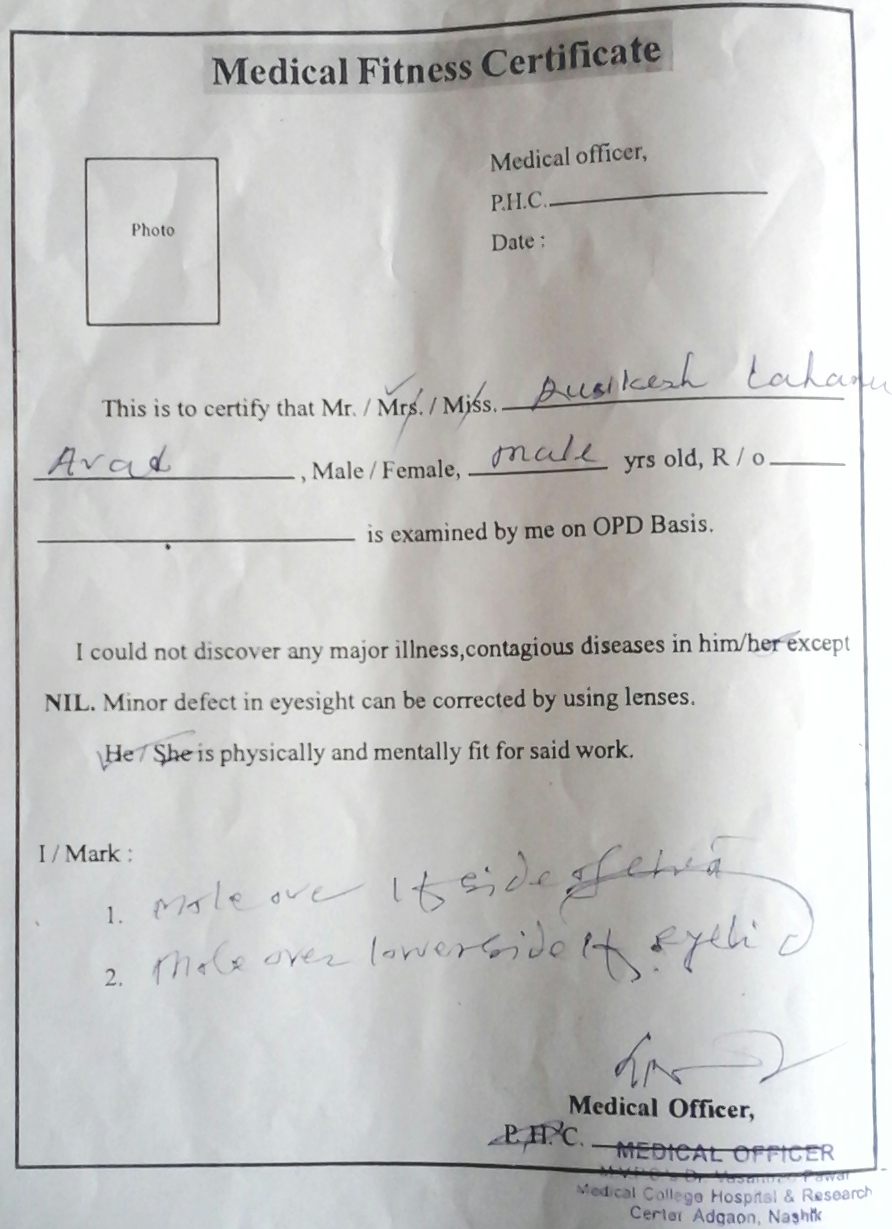 Medical Fitness Certificate
Photo
Medical officer,
P.H.C.
Date :
This is to certify that Mr. / Mrs. / Miss. Lahanu
Avad , Male / Female, male yrs old, R / o
is examined by me on OPD Basis.
I could not discover any major illness,contagious diseases in him/her except
NIL. Minor defect in eyesight can be corrected by using lenses.
He / She is physically and mentally fit for said work.
I / Mark :
1. Mole over lt side of
2. Mole over lowerside lt eyelid
Medical Officer,
P.H.C.
MEDICAL OFFICER
M.V.P.'S Dr. Vasantrao Pawar
Medical College Hospital & Research
Center Adgaon, Nashik